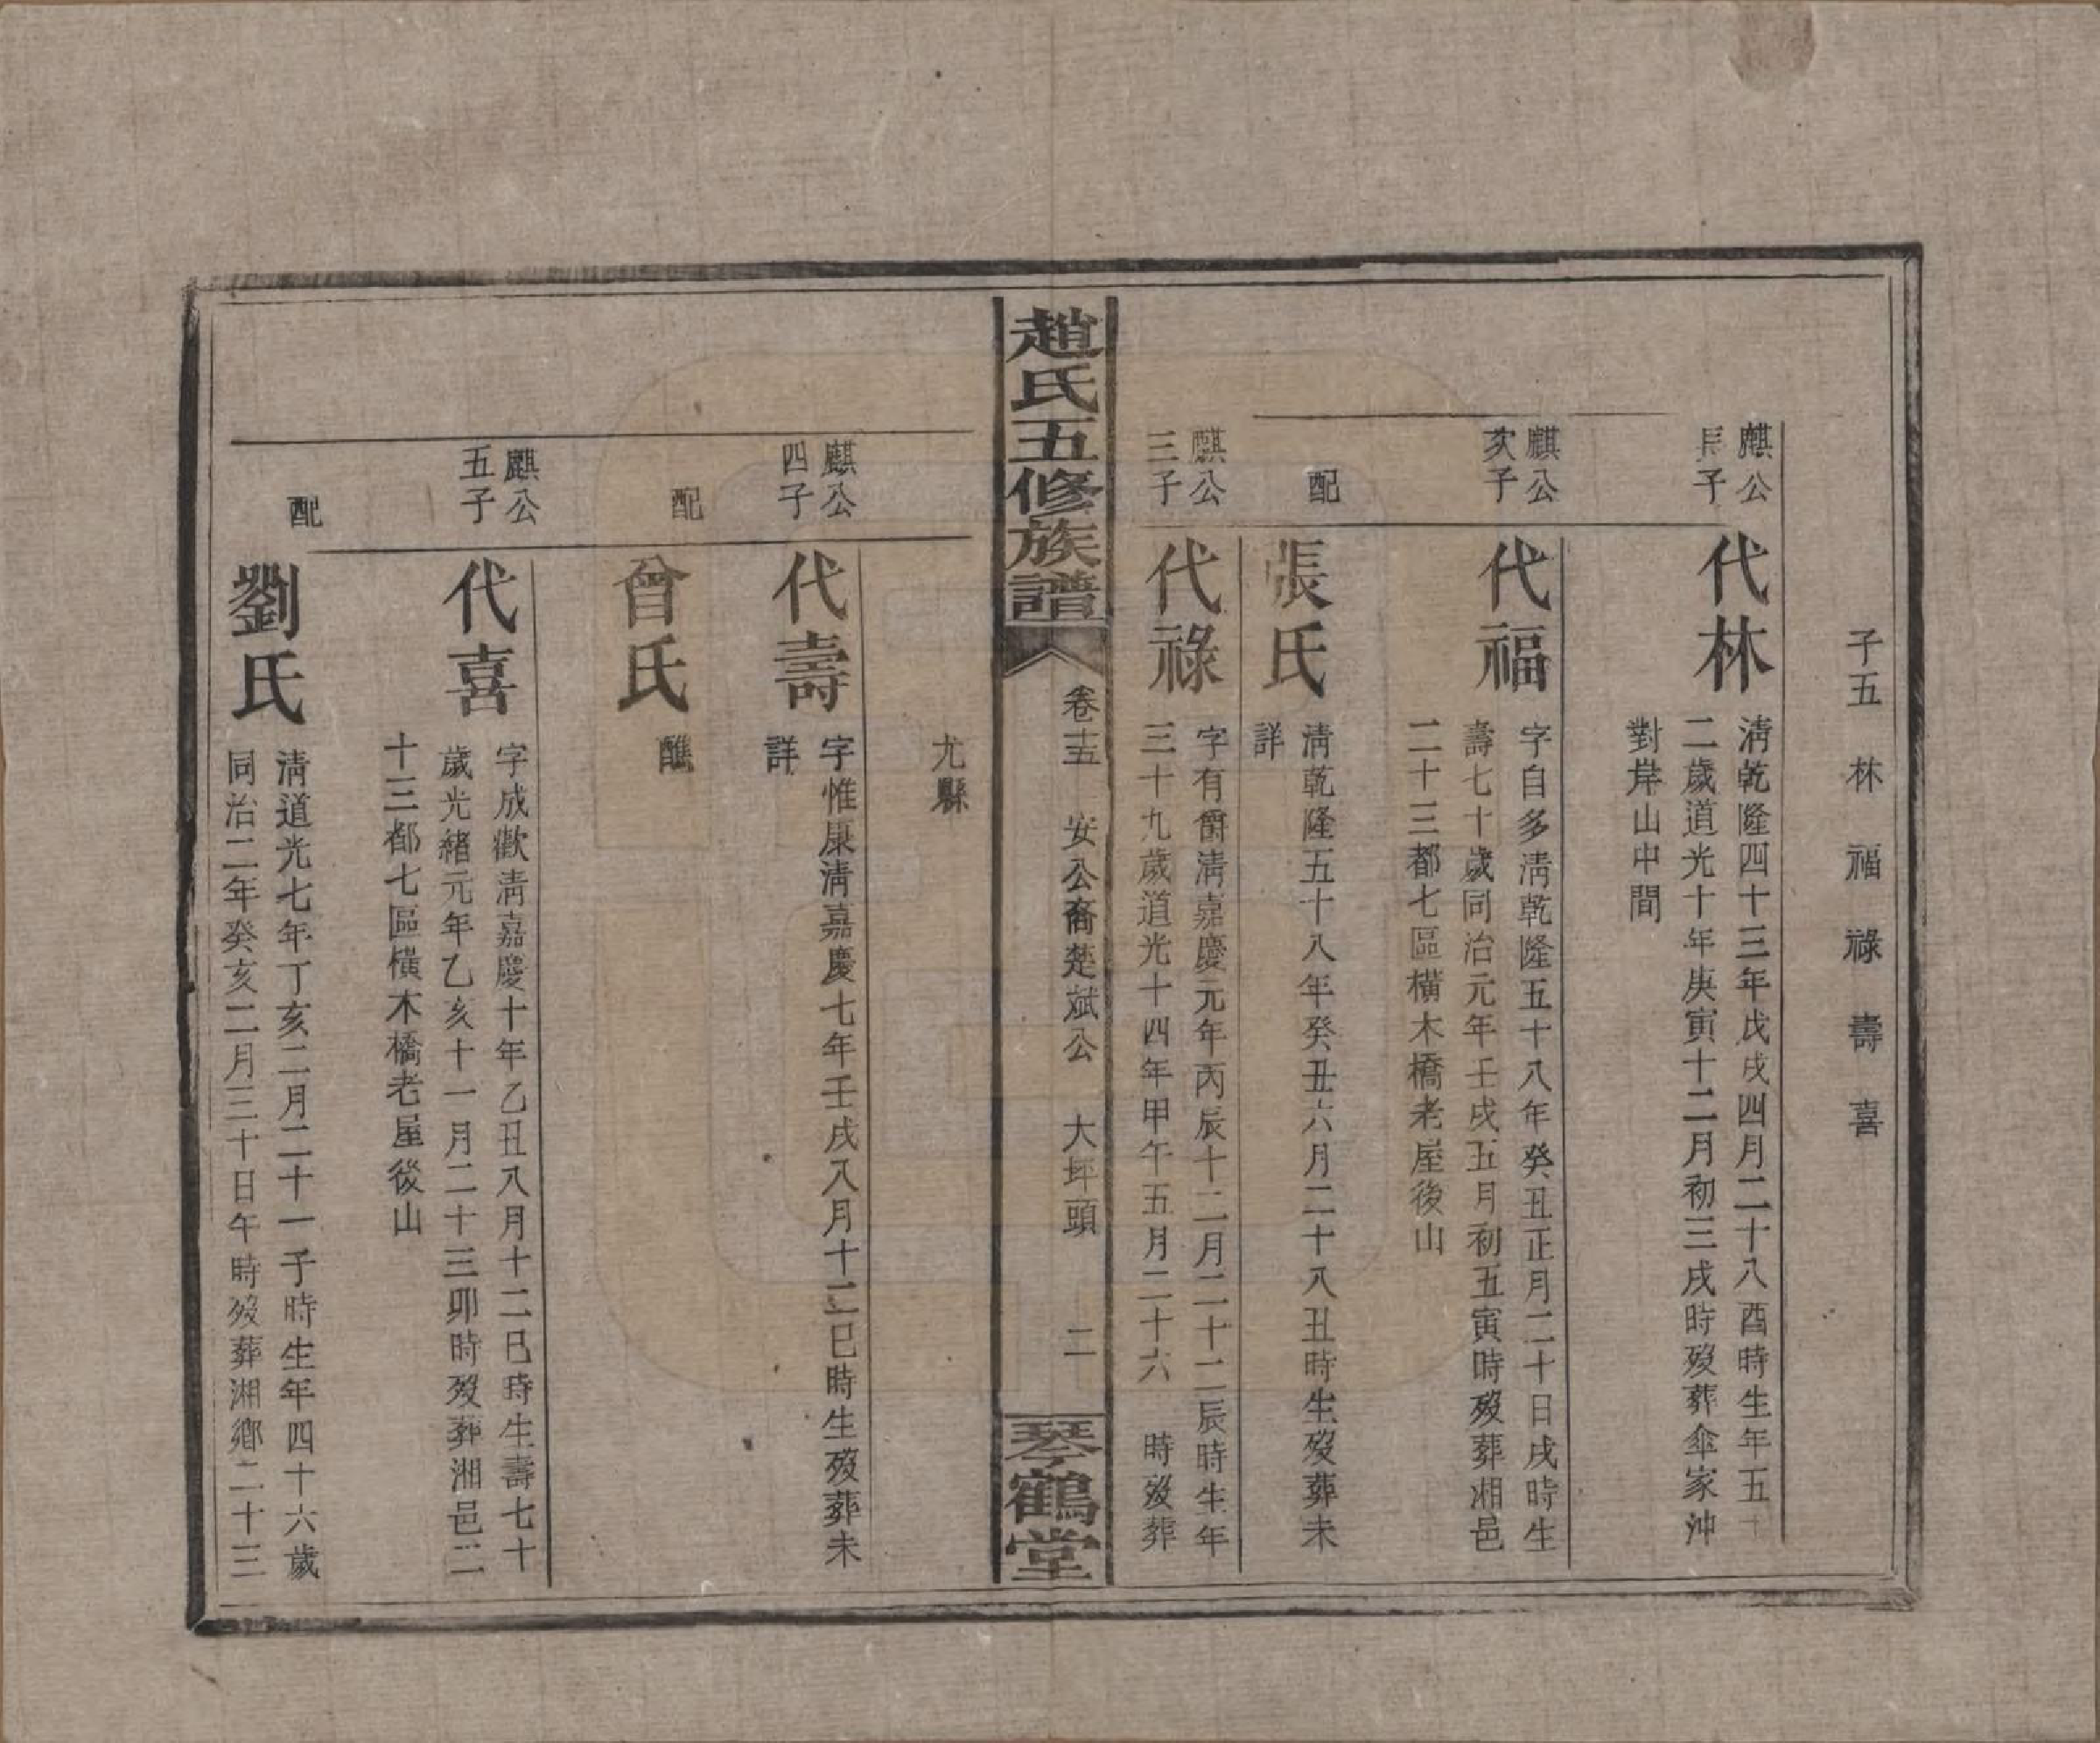 子五 林 福 祿 壽 喜
麒公
長子
代林
淸乾隆四十三年戊戌四月二十八酉時生年五十
二歲道光十年庚寅十二月初三戌時歿葬傘家沖
對岸山中間
麒公
次子
代福
字自多淸乾隆五十八年癸丑正月二十日戌時生
壽七十歲同治元年壬戌五月初五寅時歿葬湘邑
二十三都七區橫木橋老屋後山
配
張氏
淸乾隆五十八年癸丑六月二十八丑時生歿葬未
詳
麒公
三子
代祿
字有爵淸嘉慶元年丙辰十二月二十二辰時生年
三十九歲道光十四年甲午五月二十六 時歿葬
趙氏五修族譜
卷十五 安公裔楚斌公 大坪頭 二
琴鶴堂
尤縣
麒公
四子
代壽
字惟康淸嘉慶七年壬戌八月十二巳時生歿葬未
詳
配
曾氏
醮
麒公
五子
代喜
字成歡淸嘉慶十年乙丑八月十二巳時生壽七十
歲光緒元年乙亥十一月二十三卯時歿葬湘邑二
十三都七區橫木橋老屋後山
配
劉氏
淸道光七年丁亥二月二十一子時生年四十六歲
同治二年癸亥二月三十日午時歿葬湘鄉二十三